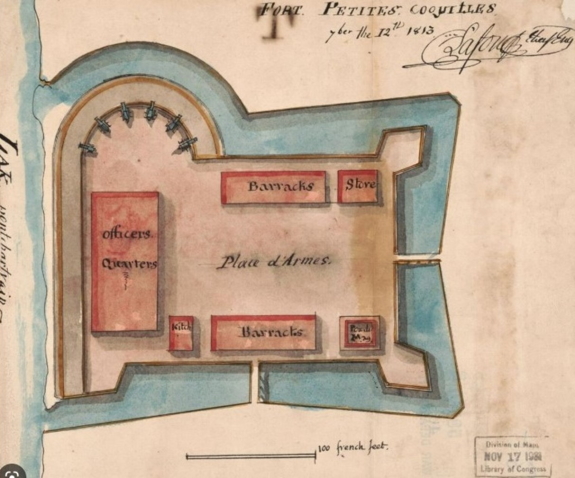 FORT PETITES COQUILLES
7ber the 12th 1813
Lafon Chief Eng
Barracks
Store
officers
Quarters
Place d'Armes.
Kitch
Barracks
Mag
100 french feet.
Division of Maps
NOV 17 19
Library of Congress
Lak pontchartrain